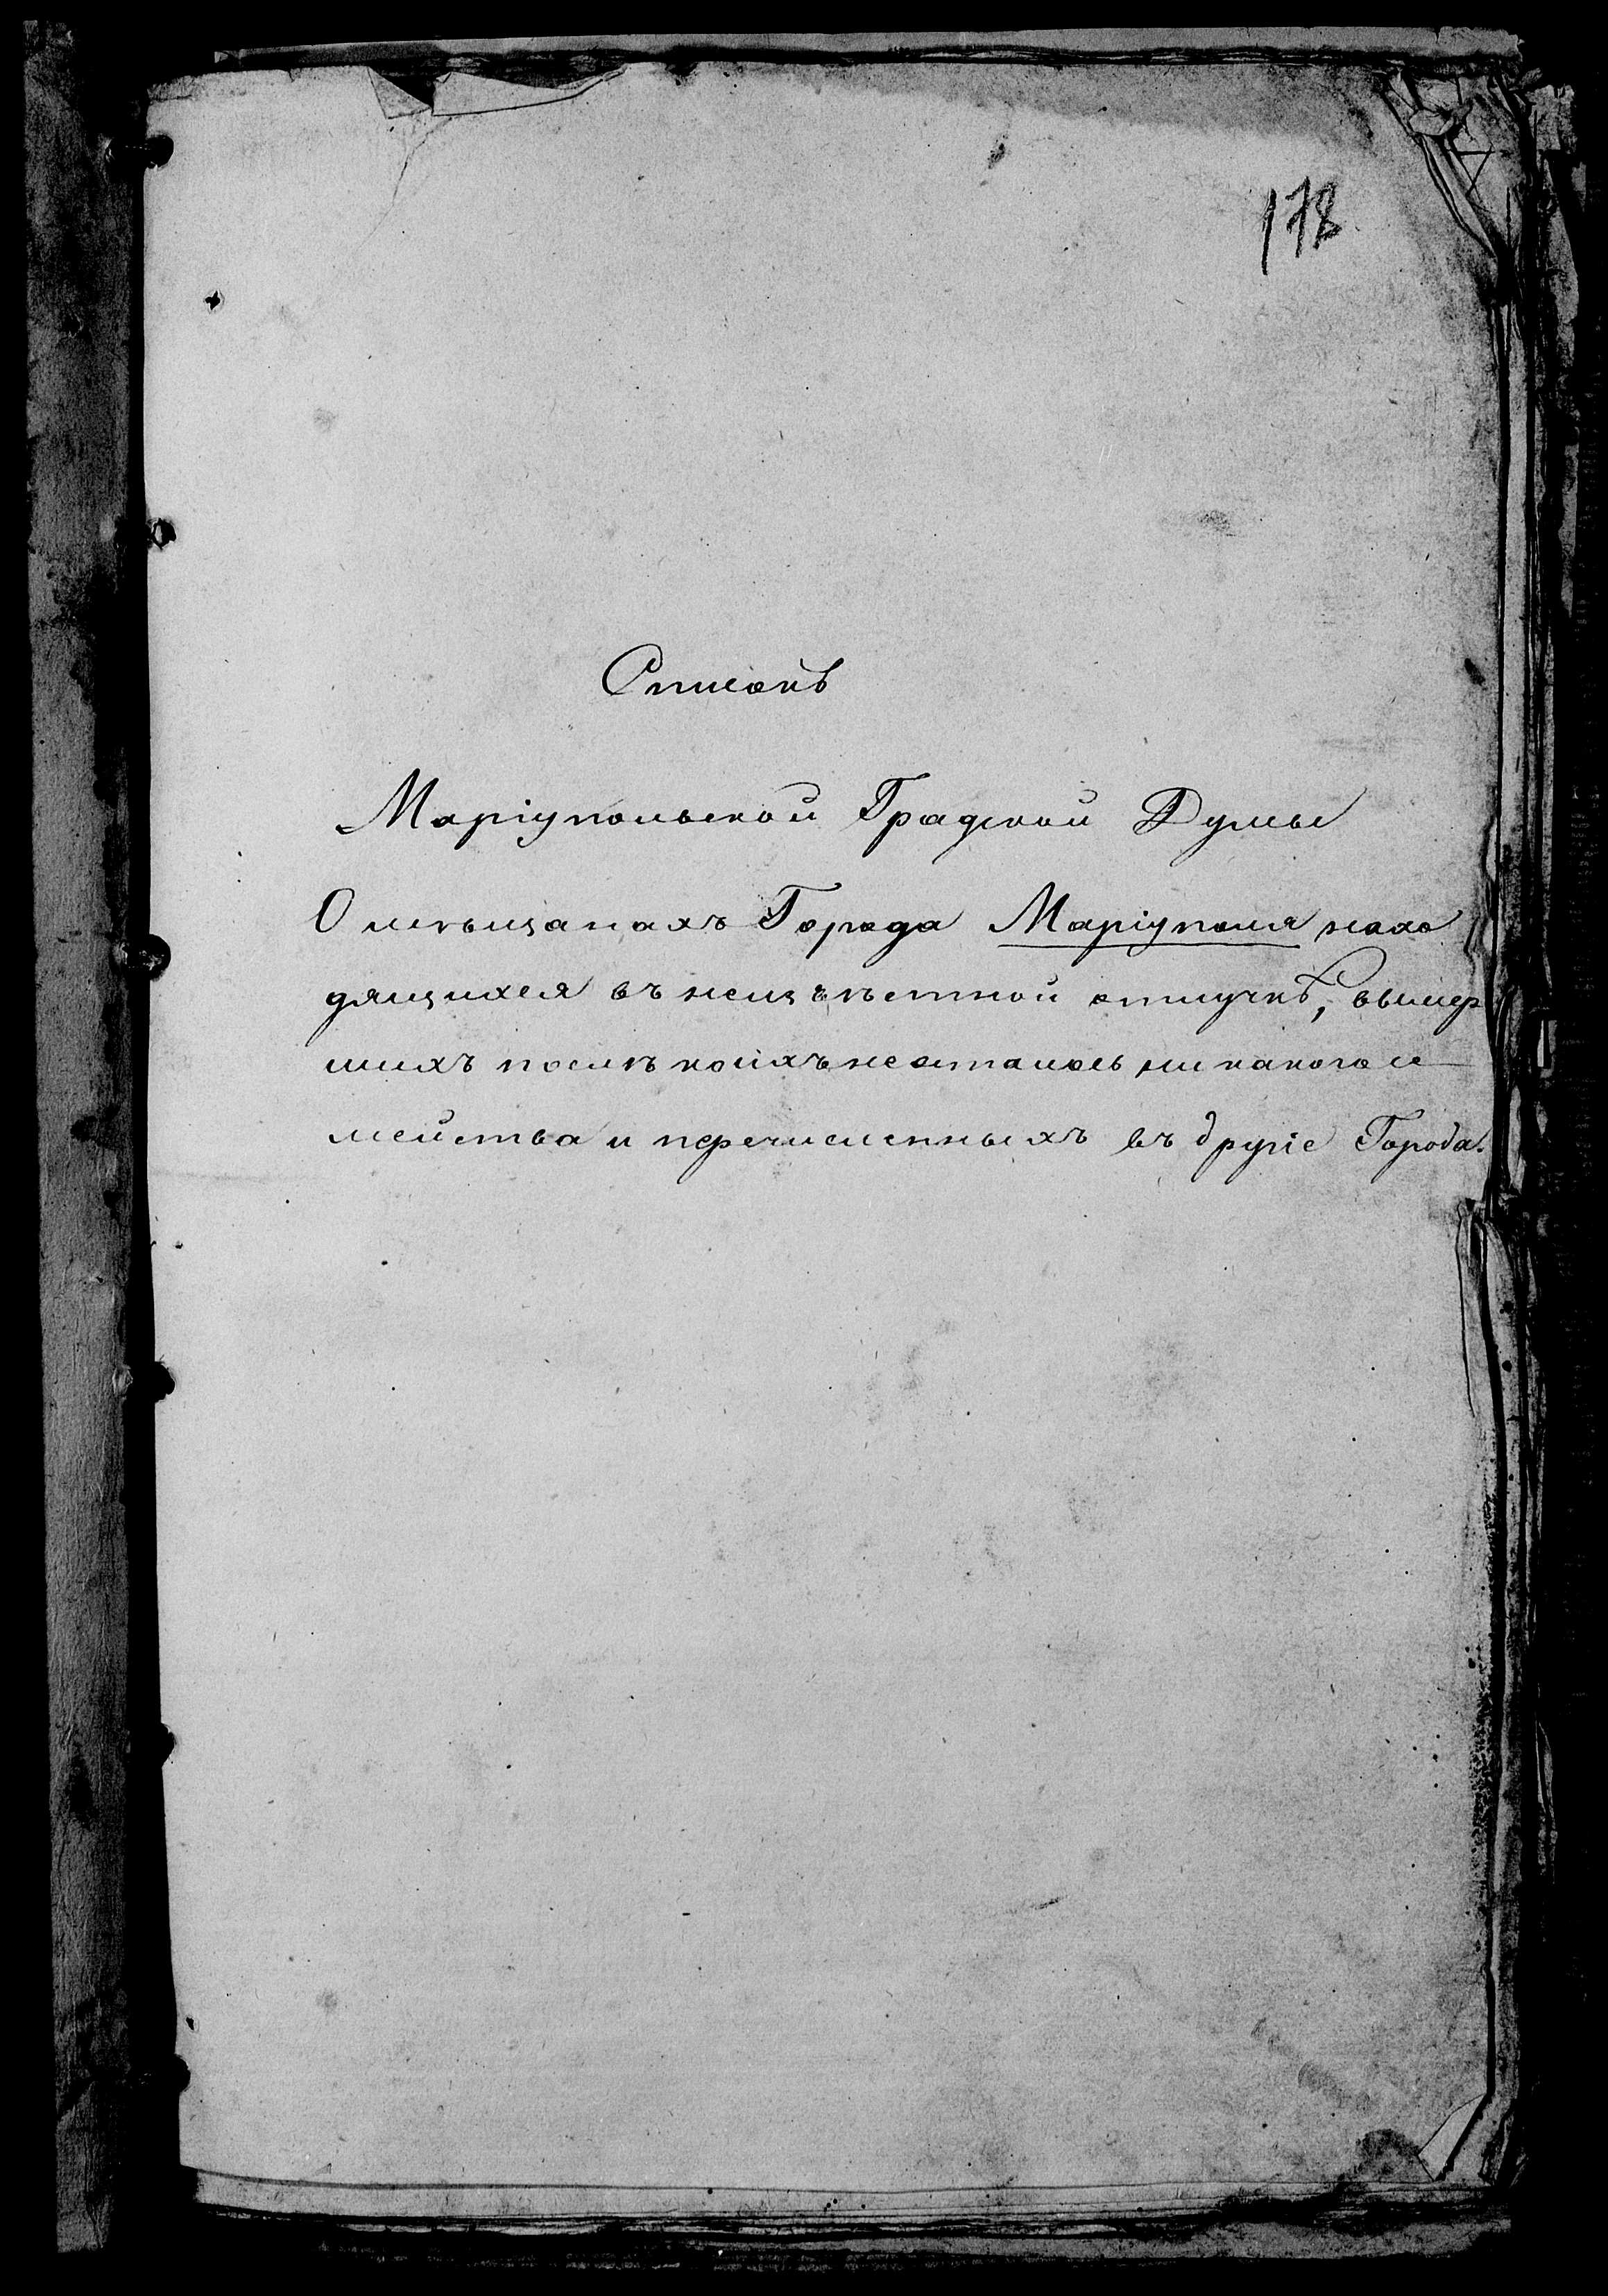 178
Списокъ
Маріупольской Градской Думы
О мѣщанахъ Города Маріуполя нахо
дящихся въ неизвѣстной отлучкѣ, вымер
шихъ послѣ коихъ неосталось никакого се
мейства и перечисленныхъ въ другіе Города.